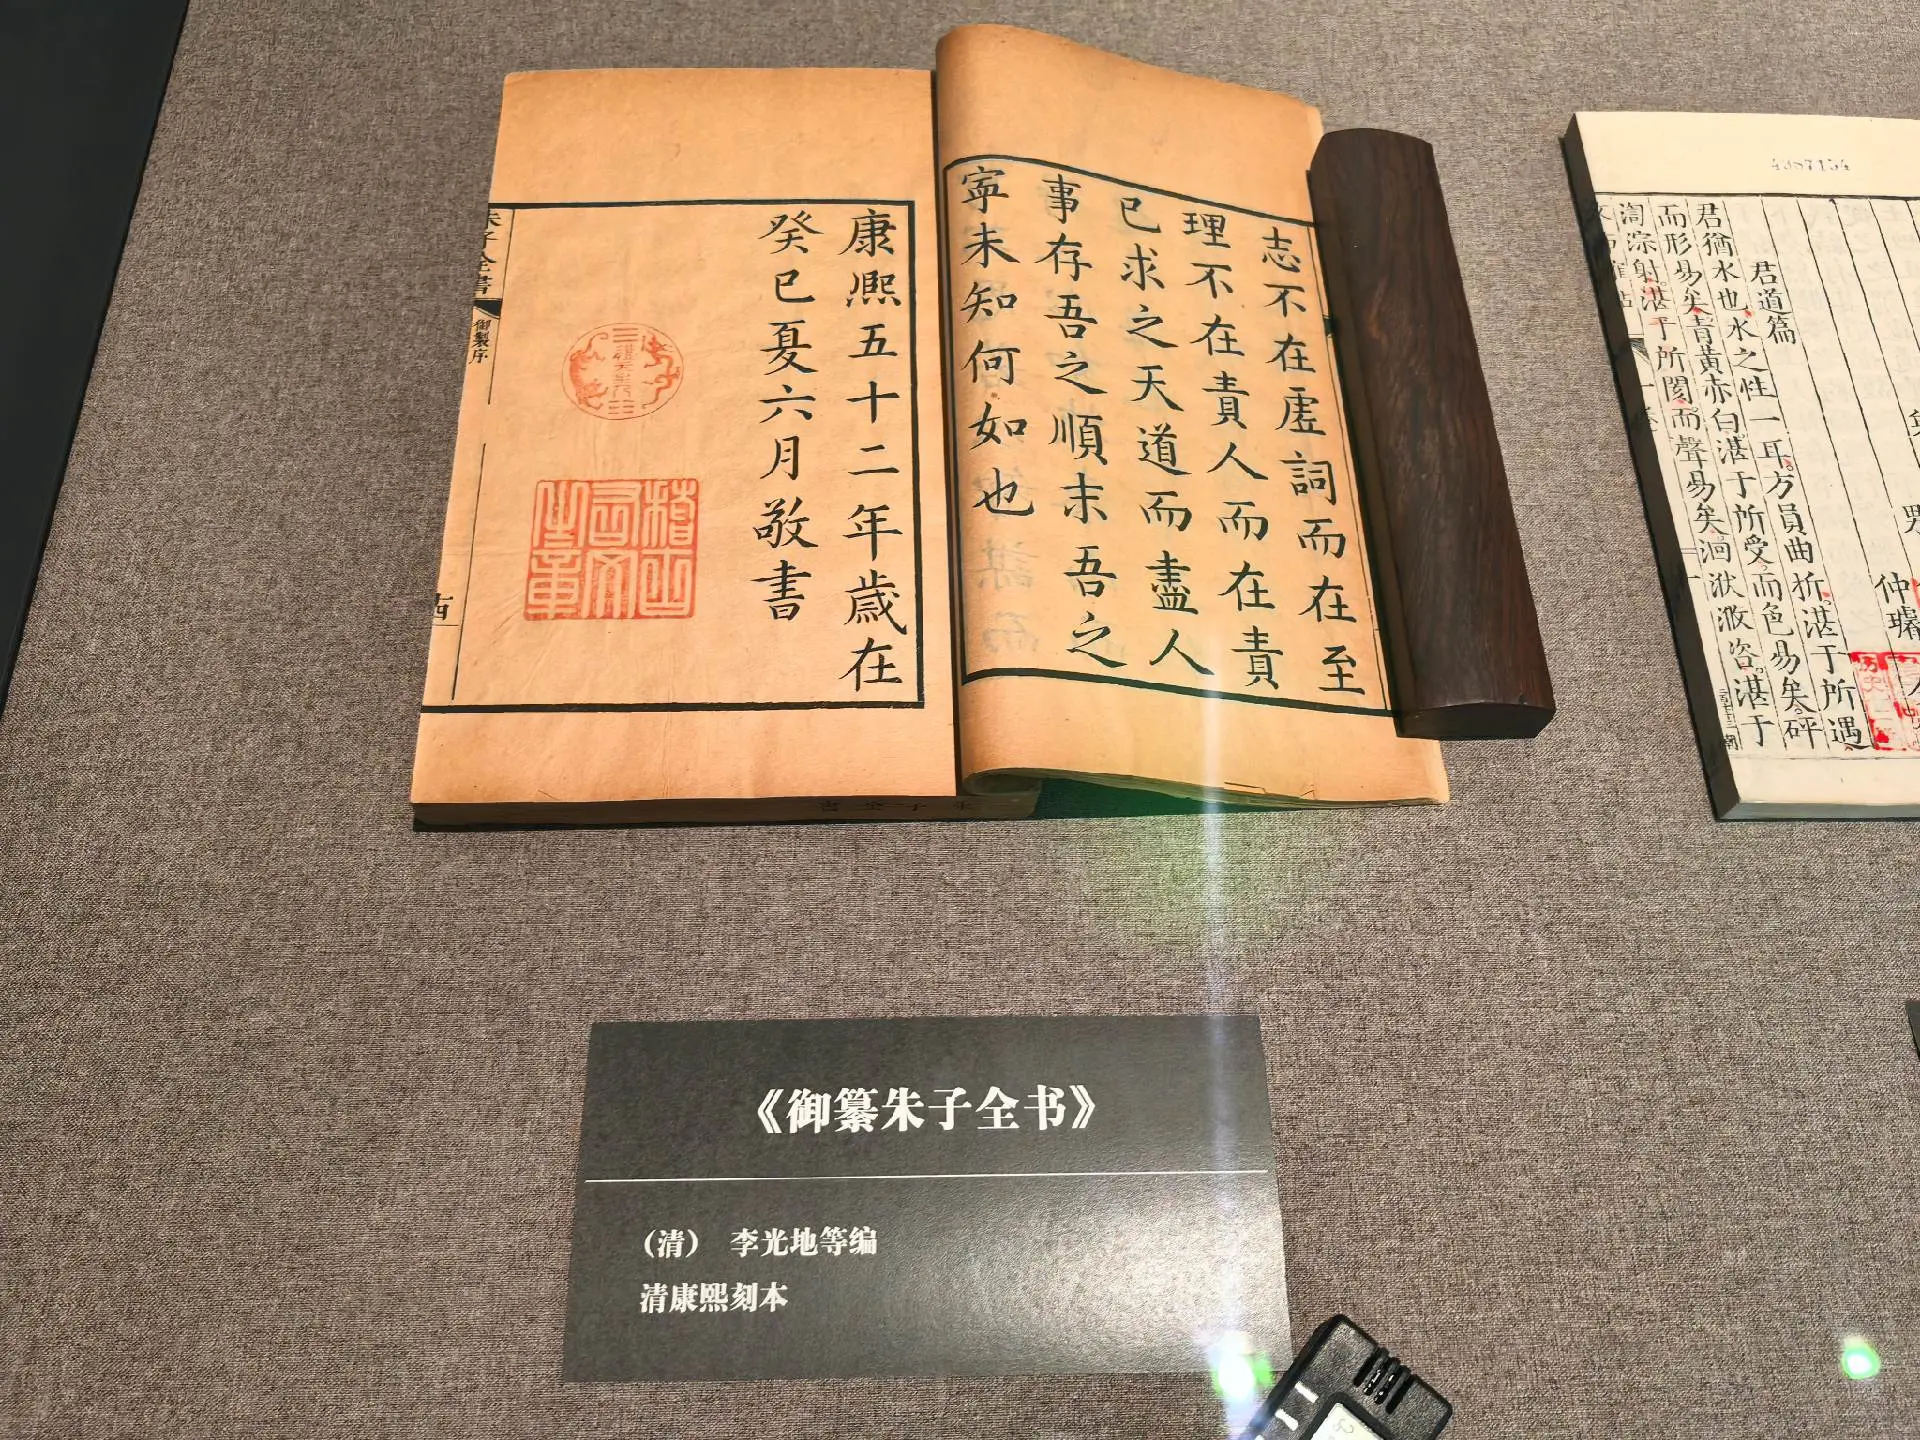 志不在虛詞而在至
理不在責人而在責
已求之天道而盡人
事存吾之順末吾之
寜未知何如也
康熈五十二年歲在
癸巳夏六月敬書
稽古
右文
之章
朱子全書
御製序
4387154
仲璿
君道篇
君猶水也水之性一耳方員曲折湛于所遇
而形易矣青黄赤白湛于所受而色易矣砰
訇淙射湛于所閡而聲易矣洄洑湛于
《御纂朱子全书》
（清） 李光地等编
清康熙刻本